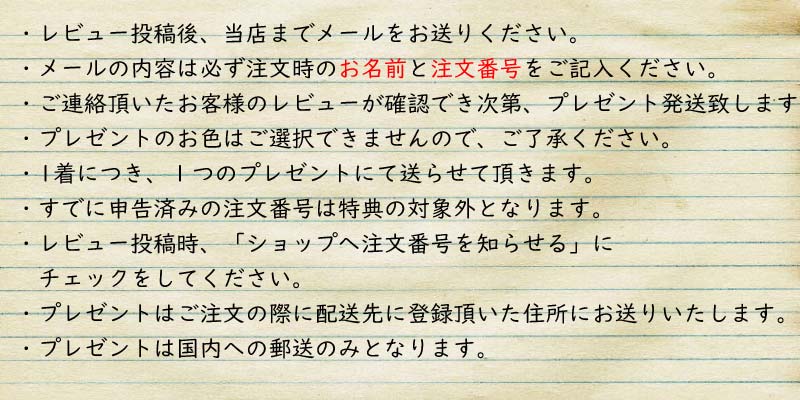 ・レビュー投稿後、当店までメールをお送りください。
・メールの内容は必ず注文時のお名前と注文番号をご記入ください。
・ご連絡頂いたお客様のレビューが確認でき次第、プレゼント発送致します
・プレゼントのお色はご選択できませんので、ご了承ください。
・1着につき、1つのプレゼントにて送らせて頂きます。
・すでに申告済みの注文番号は特典の対象外となります。
・レビュー投稿時、「ショップへ注文番号を知らせる」に
チェックをしてください。
・プレゼントはご注文の際に配送先に登録頂いた住所にお送りいたします。
・プレゼントは国内への郵送のみとなります。